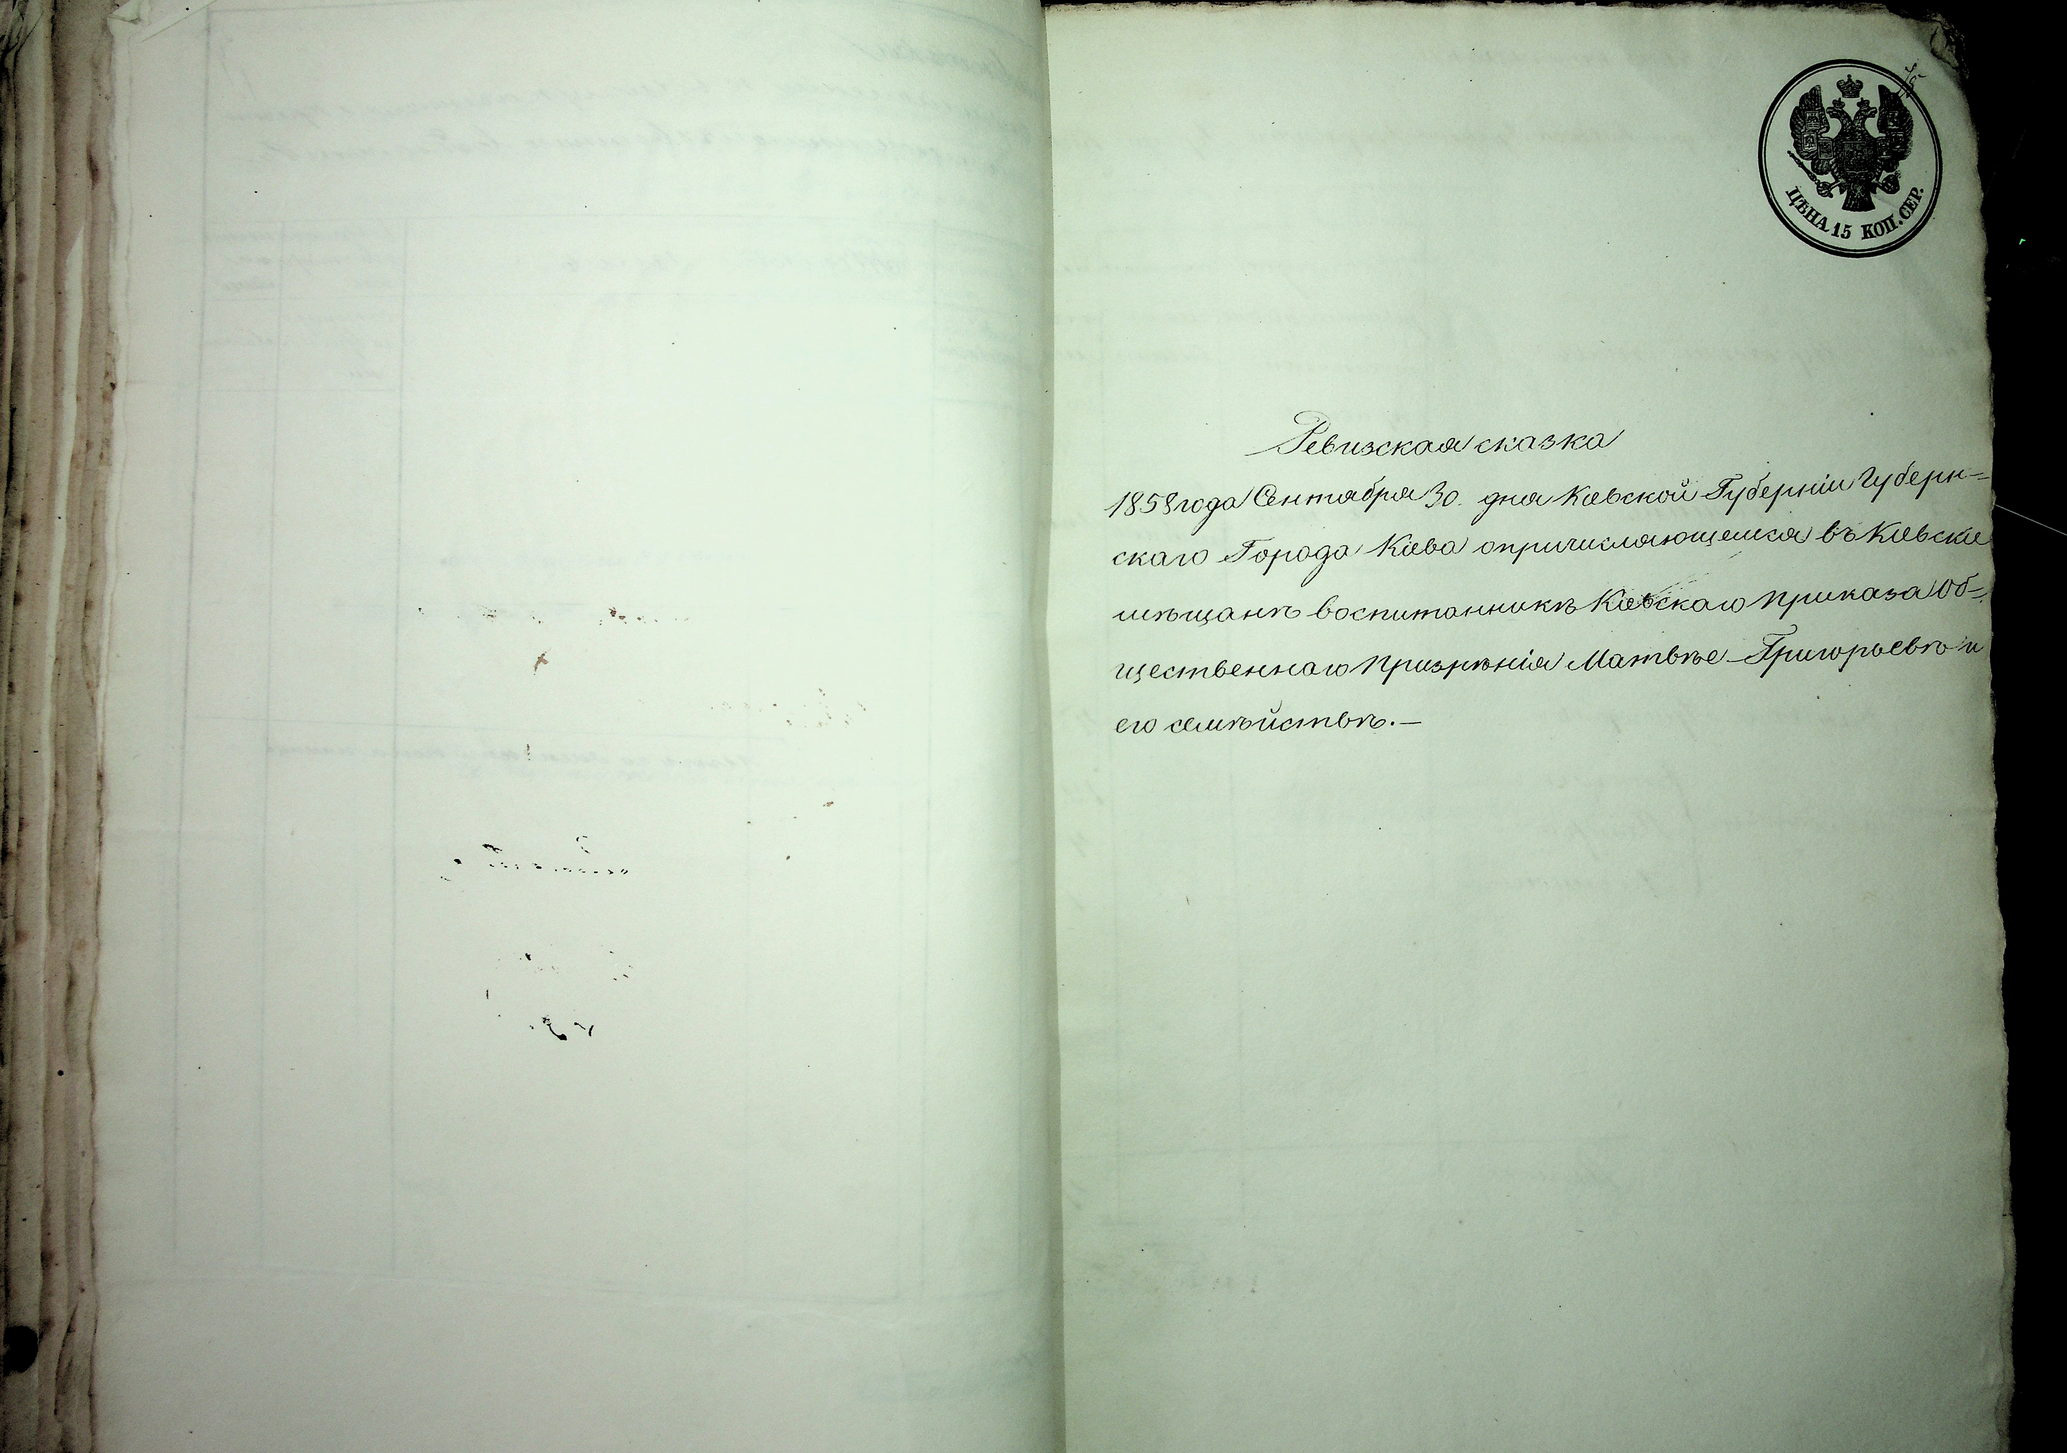 ЦѢНА 15 КОП. СЕР.
Ревизская сказка
1858 года Сентября 30. дня Кіевской Губерніи Губерн=
скаго Города Кіева о причисляющемся въ Кіевскіе
мѣщане воспитанникѣ Кіевскаго Приказа Об=
щественнаго Призрѣнія Матвѣе Григорьевѣ и
его семѣйствѣ.—